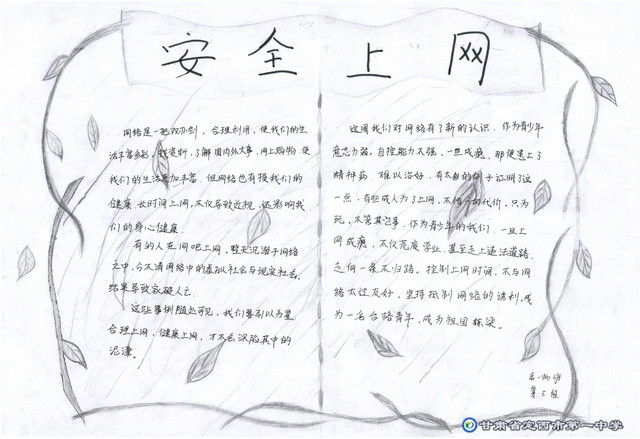 安全上网
网络是一把双刃剑，合理利用，使我们的生
活丰富多彩，找资料，了解国内外大事，网上购物，使
我们的生活更加丰富，但网络也有损我们的
健康，长时间上网，不仅导致近视，还影响我
们的身心健康。
有的人在网吧上网，整天沉溺于网络
之中，分不清网络中的虚拟社会与现实社会，
结果导致家破人亡。
这些事例随处可见，我们要引以为鉴
合理上网，健康上网，才不会深陷其中的
泥潭。
这周我们对网络有了新的认识，作为青少年
意志力弱，自控能力不强，一旦成瘾，那便患上了
精神药，难以治好，有太多的例子证明了这
一点，有些成人为了上网，不惜一切代价，只为
玩，不管其它事，作为青少年的我们，一旦上
网成瘾，不仅荒废学业，甚至走上违法道路
走向一条不归路。控制上网时间，不与网
络太过友好，坚持抵制网络的诱利，成
为一名合格青年，成为祖国栋梁。
第5组
甘肃省定西市第一中学